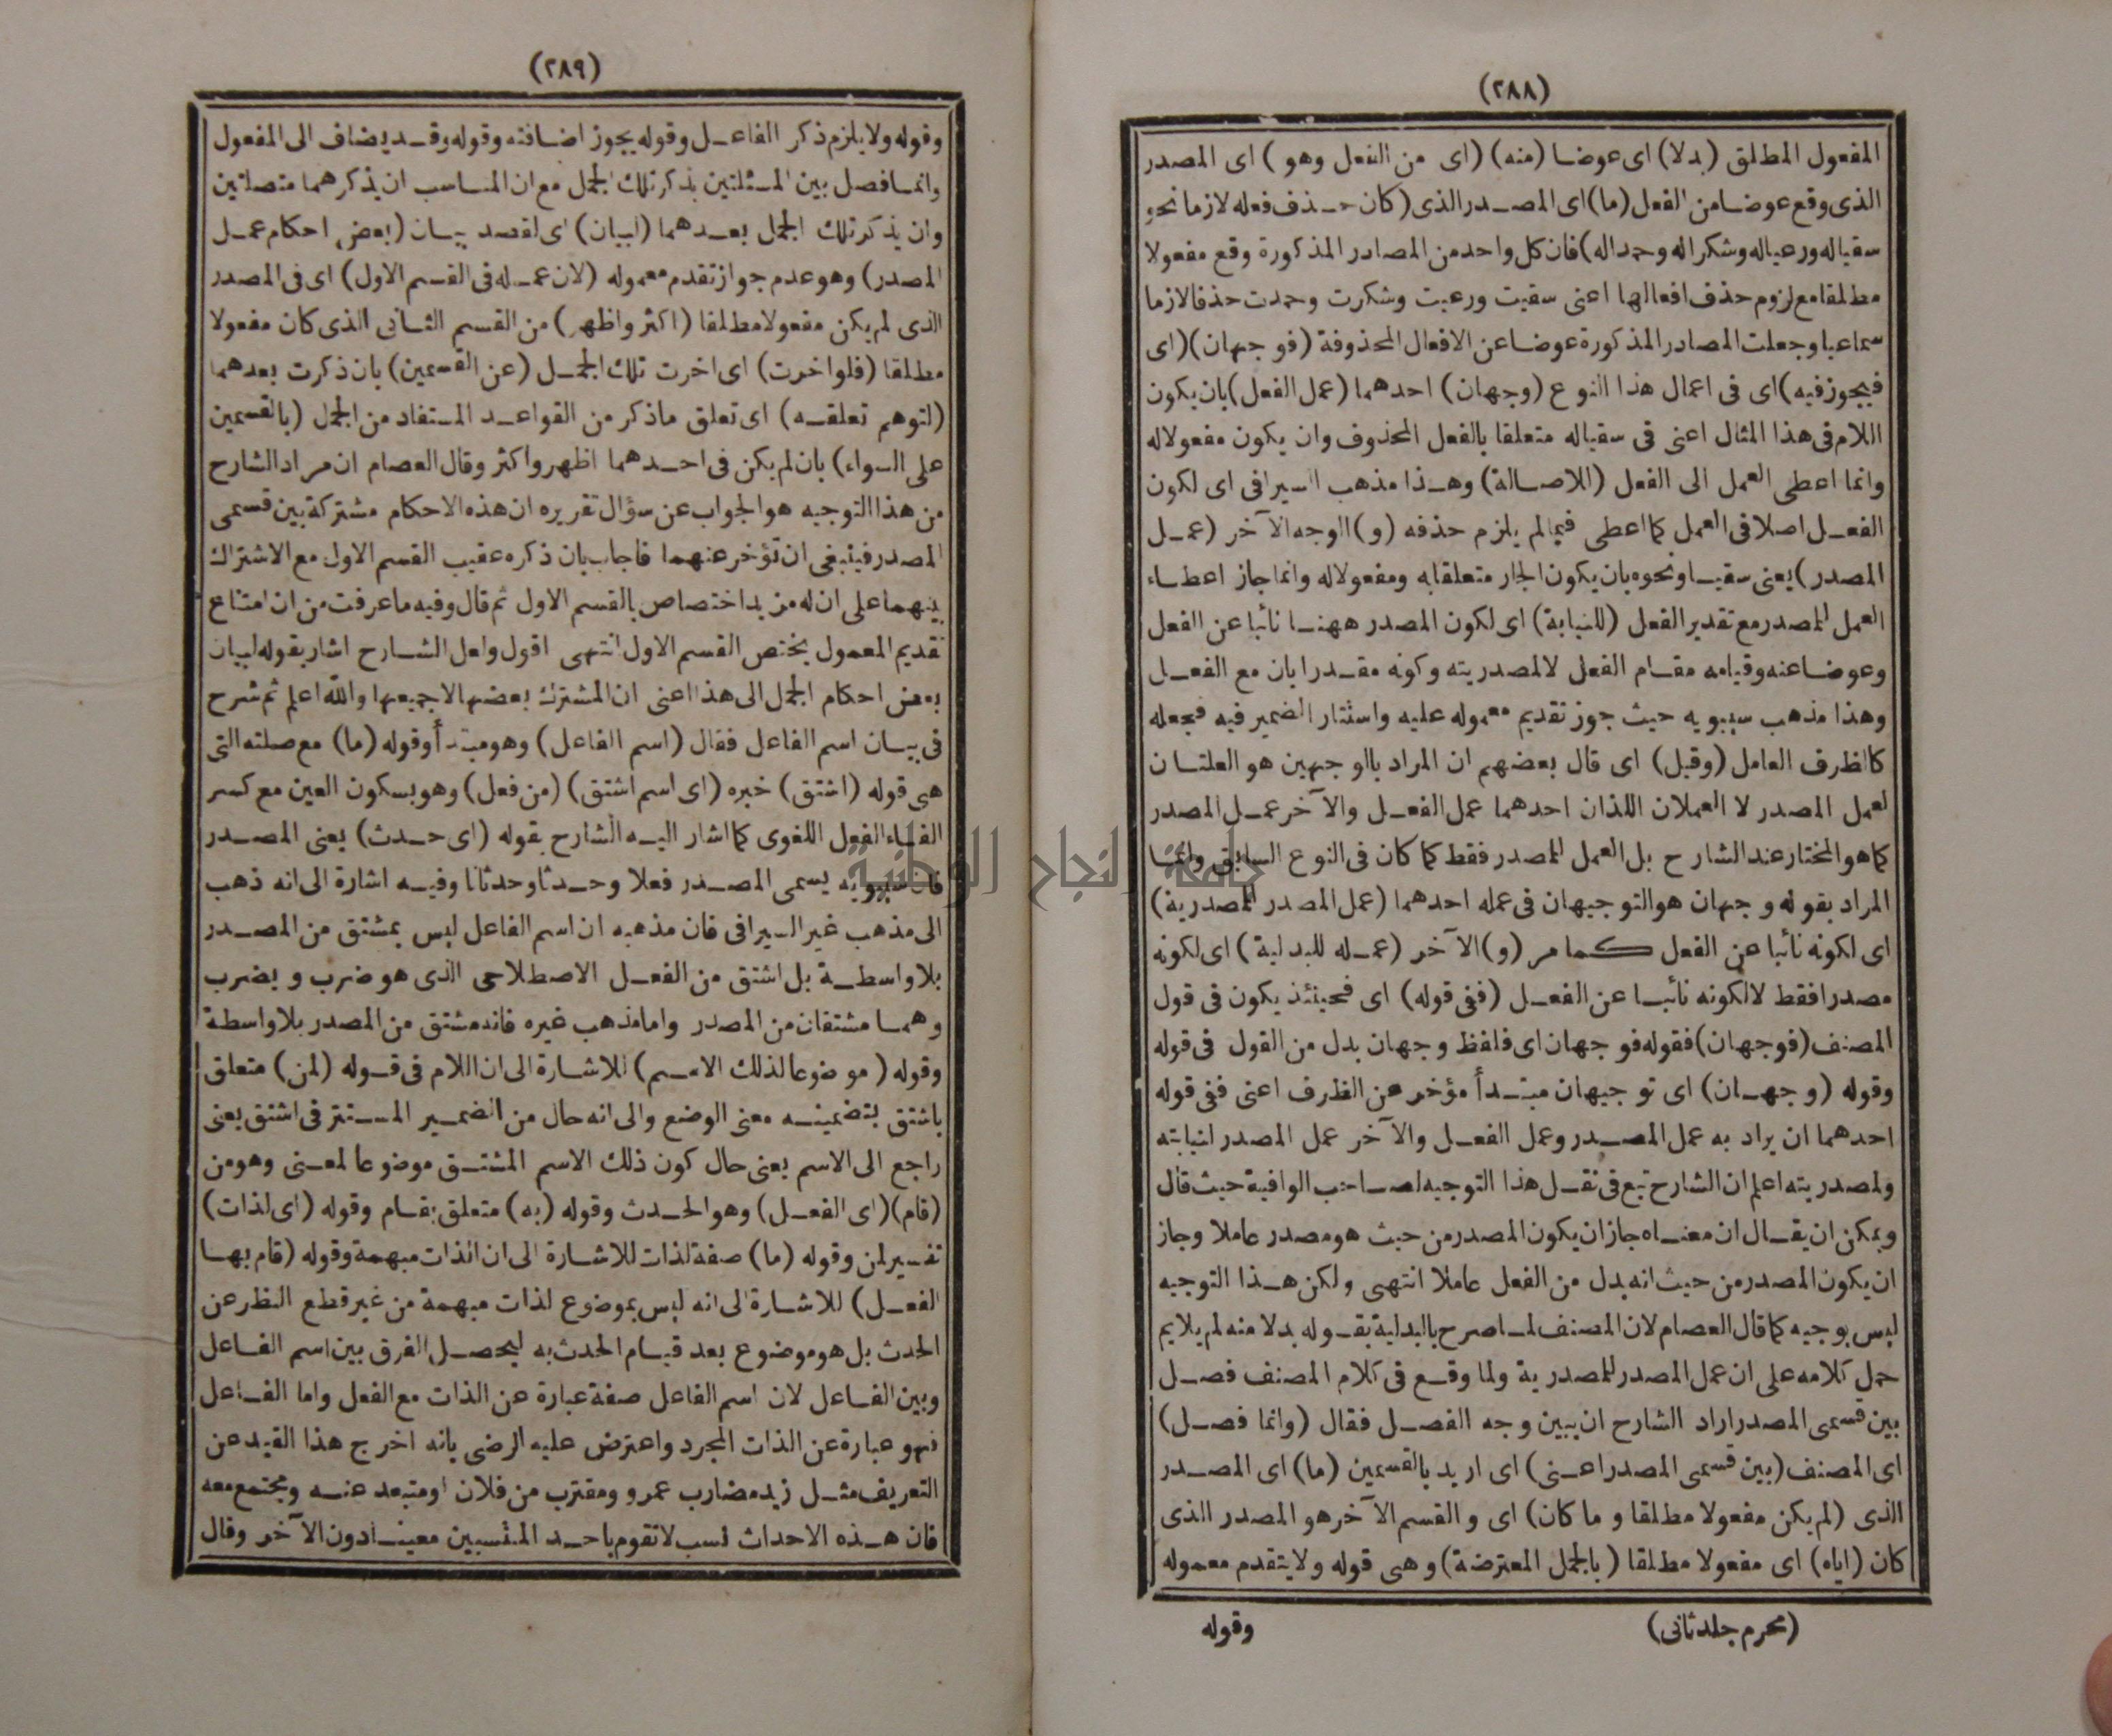 (٢٨٨)
المفعول المطلق (بدلا) اى عوضا (منه) (اى من الفعل وهو) اى المصدر
الذى وقع عوضا من الفعل (ما) اى المصدر الذى (كان حذف فعله لازما نحو
سقياله ورعياله وشكراله وحمداله) فان كل واحد من المصادر المذكورة وقع مفعولا
مطلقا مع لزوم حذف افعالها اعنى سقيت ورعيت وشكرت وحمدت حذفا لازما
سماعيا وجعلت المصادر المذكورة عوضا عن الافعال المحذوفة (فوجهان) (اى
فيجوز فيه) اى فى اعمال هذا النوع (وجهان) احدهما (عمل الفعل) بان يكون
اللام فى هذا المثال اعنى فى سقياله متعلقا بالفعل المحذوف وان يكون مفعولا له
وانما اعطى العمل الى الفعل (للاصالة) وهذا مذهب السيرافى اى لكون
الفعل اصلا فى العمل كما اعطى فيما لم يلزم حذفه (و) الوجه الآخر (عمل
المصدر) يعنى سقيا ونحوه بان يكون الجار متعلقا به ومفعولا له وانما جاز اعطاء
العمل للمصدر مع تقدير الفعل (للنيابة) اى لكون المصدر ههنا نائبا عن الفعل
وعوضا عنه وقيامه مقام الفعل لا لمصدريته وكونه مقدرا بان مع الفعل
وهذا مذهب سيبويه حيث جوز تقديم معموله عليه واستتار الضمير فيه فجعله
كالظرف العامل (وقيل) اى قال بعضهم ان المراد بالوجهين هو العلتان
لعمل المصدر لا العملان اللذان احدهما عمل الفعل والآخر عمل المصدر
كما هو المختار عند الشارح بل العمل للمصدر فقط كما كان فى النوع السابق وانما
المراد بقوله وجهان هو التوجيهان فى عمله احدهما (عمل المصدر للمصدرية)
اى لكونه نائبا عن الفعل كما مر (و) الآخر (عمله للبدلية) اى لكونه
مصدرا فقط لا لكونه نائبا عن الفعل (ففى قوله) اى فحينئذ يكون فى قول
المصنف (فوجهان) فقوله فوجهان اى فلفظ وجهان بدل من القول فى قوله
وقوله (وجهان) اى توجيهان مبتدأ مؤخر عن الظرف اعنى ففى قوله
احدهما ان يراد به عمل المصدر وعمل الفعل والآخر عمل المصدر لنيابته
ولمصدريته اعلم ان الشارح تبع فى نقل هذا التوجيه لصاحب الوافية حيث قال
ويمكن ان يقال ان معناه جاز ان يكون المصدر من حيث هو مصدر عاملا وجاز
ان يكون المصدر من حيث انه بدل من الفعل عاملا انتهى ولكن هذا التوجيه
ليس بوجيه كما قال العصام لان المصنف لما صرح بالبدلية بقوله بدلا منه لم يلايم
حمل كلامه على ان عمل المصدر للمصدرية ولما وقع فى كلام المصنف فصل
بين قسمى المصدر اراد الشارح ان يبين وجه الفصل فقال (وانما فصل)
اى المصنف (بين قسمى المصدر اعنى) اى اريد بالقسمين (ما) اى المصدر
الذى (لم يكن مفعولا مطلقا وما كان) اى والقسم الآخر هو المصدر الذى
كان (اياه) اى مفعولا مطلقا (بالجمل المعترضة) وهى قوله ولا يتقدم معموله
(محرم جلد ثانى)
وقوله
(٢٨٩)
وقوله ولا يلزم ذكر الفاعل وقوله يجوز اضافته وقوله وقد يضاف الى المفعول
وانما فصل بين المسئلتين بذكر تلك الجمل مع ان المناسب ان يذكرهما متصلتين
وان يذكر تلك الجمل بعدهما (لبيان) اى لقصد بيان (بعض احكام عمل
المصدر) وهو عدم جواز تقدم معموله (لان عمله فى القسم الاول) اى فى المصدر
الذى لم يكن مفعولا مطلقا (اكثر واظهر) من القسم الثانى الذى كان مفعولا
مطلقا (فلو اخرت) اى اخرت تلك الجمل (عن القسمين) بان ذكرت بعدهما
(لتوهم تعلقه) اى تعلق ما ذكر من القواعد المستفاد من الجمل (بالقسمين
على السواء) بان لم يكن فى احدهما اظهر واكثر وقال العصام ان مراد الشارح
من هذا التوجيه هو الجواب عن سؤال تقريره ان هذه الاحكام مشتركة بين قسمى
المصدر فينبغى ان تؤخر عنهما فاجاب بان ذكره عقيب القسم الاول مع الاشتراك
بينهما على ان له مزيد اختصاص بالقسم الاول ثم قال وفيه ما عرفت من ان امتناع
تقديم المعمول يختص القسم الاول انتهى اقول ولعل الشارح اشار بقوله لبيان
بعض احكام الجمل الى هذا اعنى ان المشترك بعضها لا جميعها والله اعلم ثم شرح
فى بيان اسم الفاعل فقال (اسم الفاعل) وهو مبتدأ وقوله (ما) مع صلته التى
هى قوله (اشتق) خبره (اى اسم اشتق) (من فعل) وهو بسكون العين مع كسر
الفاء الفعل اللغوى كما اشار اليه الشارح بقوله (اى حدث) يعنى المصدر
فان سيبويه يسمى المصدر فعلا وحدثا وحدثانا وفيه اشارة الى انه ذهب
الى مذهب غير السيرافى فان مذهبه ان اسم الفاعل ليس بمشتق من المصدر
بلا واسطة بل اشتق من الفعل الاصطلاحى الذى هو ضرب ويضرب
وهما مشتقان من المصدر واما مذهب غيره فانه مشتق من المصدر بلا واسطة
وقوله (موضوعا لذلك الاسم) للاشارة الى ان اللام فى قوله (لمن) متعلق
باشتق بتضمينه معنى الوضع والى انه حال من الضمير المستتر فى اشتق يعنى
راجع الى الاسم يعنى حال كون ذلك الاسم المشتق موضوعا لمعنى وهو من
(قام) (اى الفعل) وهو الحدث وقوله (به) متعلق بقام وقوله (اى لذات)
تفسير لمن وقوله (ما) صفة لذات للاشارة الى ان الذات مبهمة وقوله (قام بها
الفعل) للاشارة الى انه ليس بموضوع لذات مبهمة من غير قطع النظر عن
الحدث بل هو موضوع بعد قيام الحدث به ليحصل الفرق بين اسم الفاعل
وبين الفاعل لان اسم الفاعل صفة عبارة عن الذات مع الفعل واما الفاعل
فهو عبارة عن الذات المجرد واعترض عليه الرضى بانه اخرج هذا القيد عن
التعريف مثل زيد مضارب عمرو ومقترب من فلان او متبعد عنه ومجتمع معه
فان هذه الاحداث نسب لا تقوم باحد المنتسبين معينا دون الآخر وقال
جامعة النجاح الوطنية